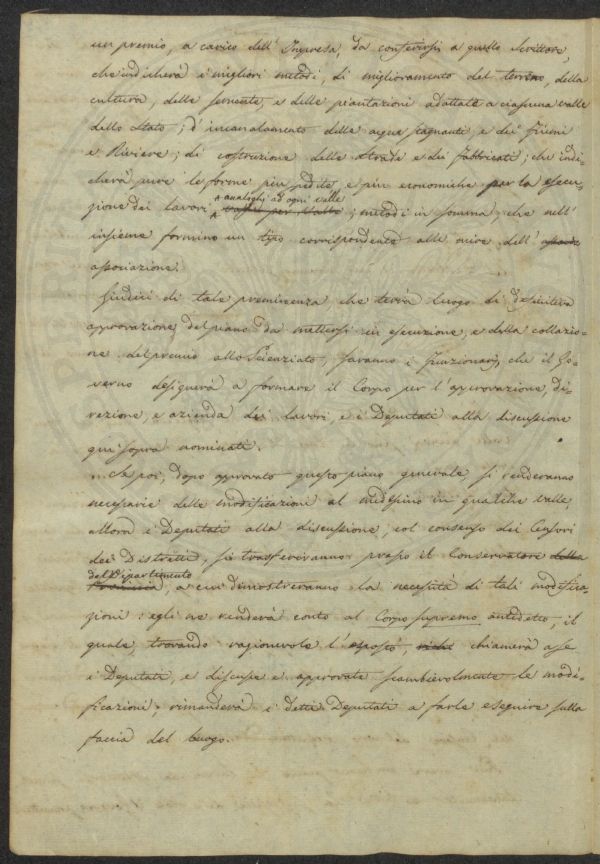 un premio, a carico dell'Impresa, da conferirsi a quello Scrittore,
che indicherà i migliori metodi, di miglioramento del terreno, della
cultura, delle semente, e delle piantazioni adattate a ciascuna valle
dello Stato; d'incanalamento delle acque stagnanti e dei Fiumi
e Riviere; di costruzione delle Strade e dei fabbricati; che indi-
cherà pure le forme più spedite, e più economiche per la esecu-
zione dei lavori analoghi ad ogni valle; metodi in somma, che nell'
insieme formino un tipo corrispondente alle mire dell'
associazione.
Giudici di tale preminenza che terrà luogo di definitiva
approvazione del piano da mettersi in esecuzione, e della collazio-
ne del premio allo Scienziato, saranno i Funzionarj, che il Go-
verno designerà a formare il Corpo per l'approvazione, di-
rezione, e azienda dei lavori, e i Deputati alla discussione
qui sopra nominati.
Se poi, dopo approvato questo piano generale si renderanno
necessarie delle modificazioni al medesimo in qualche valle,
allora i Deputati alla discussione, col consenso dei Censori
dei Distretti, si trasferiranno presso il Conservatore della
del Dipartimento
Provincia, a cui dimostreranno la necessità di tali modifica-
zioni: egli ne renderà conto al Corpo supremo antedetto, il
quale, trovando ragionevole l'esposto, chiamerà a se
i Deputati, e discusse e approvate scambievolmente le modi-
ficazioni, rimanderà i detti Deputati a farle eseguire sulla
faccia del luogo.